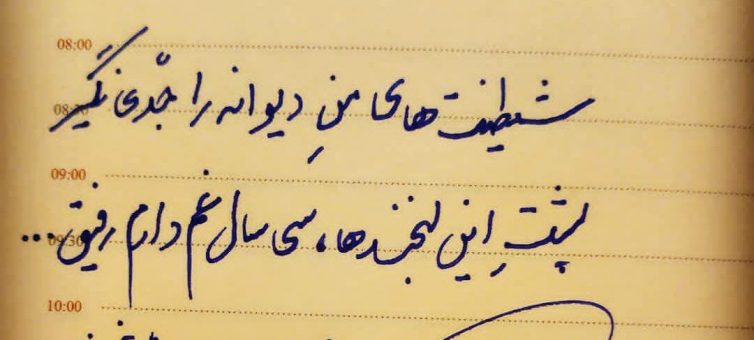 08:00
شیطنت‌های منِ دیوانه را جدّی نگیر
08:30
09:00
پشتِ این لبخندها، سی سال غم دارم رفیق...
09:30
10:00